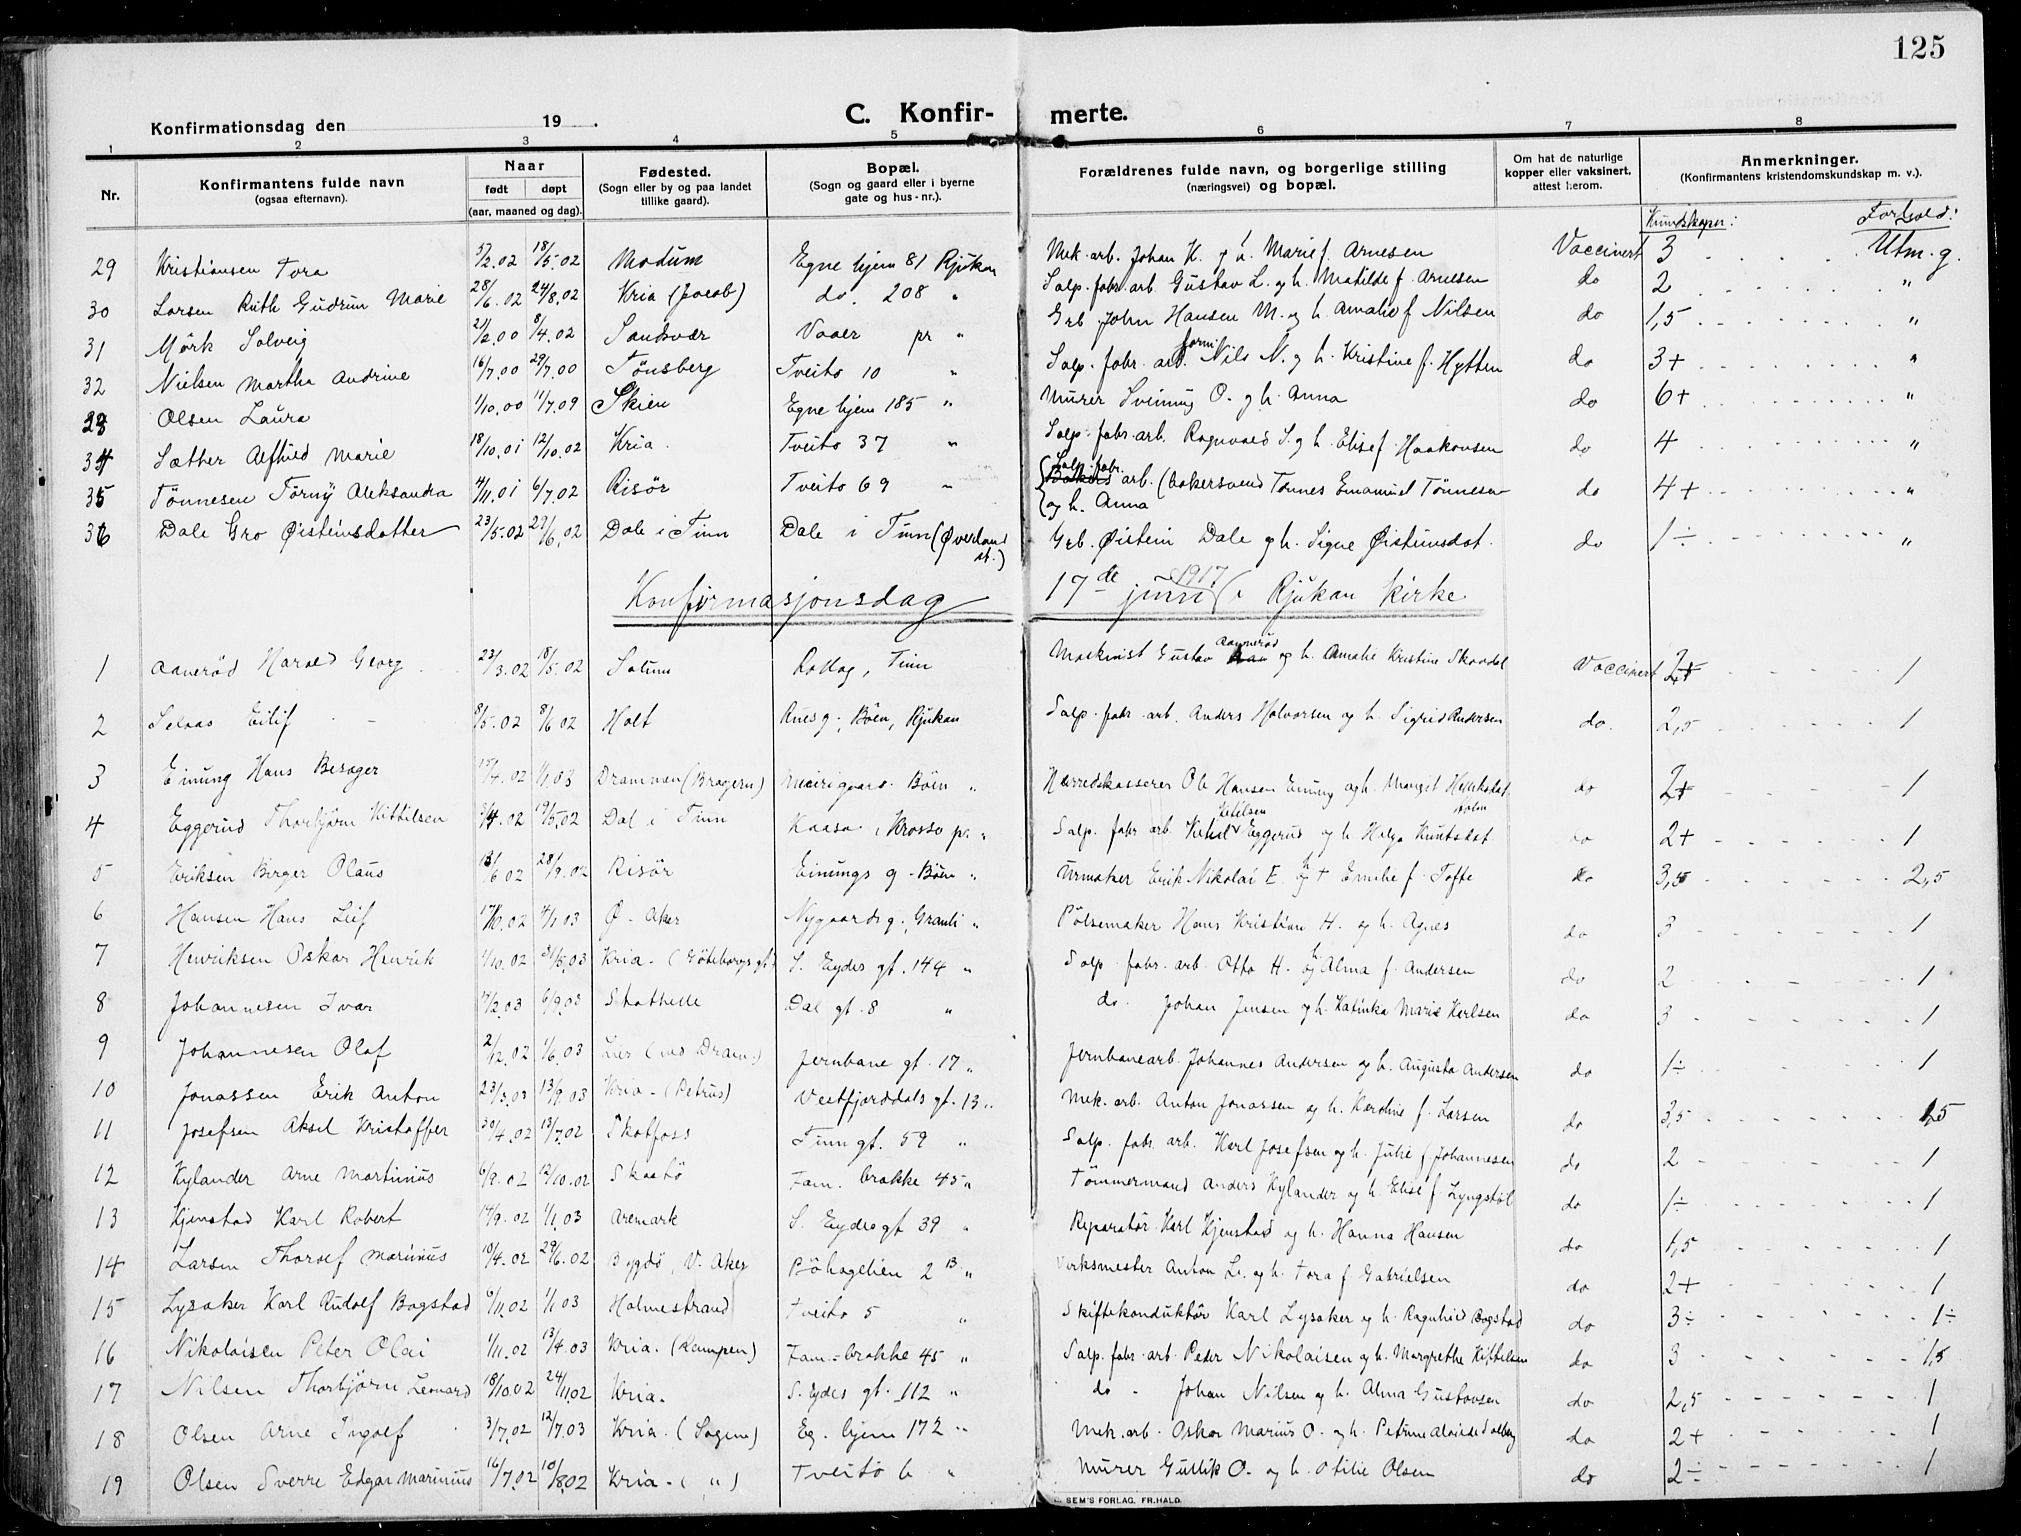 125
Konfirmationsdag den 19 .
C. Konfir- merte.
1 2 3 4 5 6 7 8
Nr. Konfirmantens fulde navn (ogsaa efternavn). Naar født døpt (aar, maaned og dag). Fødested. (Sogn eller by og paa landet tillike gaard). Bopæl. (Sogn og gaard eller i byerne gate og hus-nr.). Forældrenes fulde navn, og borgerlige stilling (næringsvei) og bopæl. Om hat de naturlige kopper eller vaksinert, attest herom. Anmerkninger. (Konfirmantens kristendomskundskap m. v.).
Kundskaper: Forhold:
29 Kristiansen Tora 5/2.02 18/5.02 Modum Egne hjem 81 Rjukan Mek. arb. Johan K. og h. Marie f. Arnesen Vaccinert 3 Utm. g.
30 Larsen Ruth Gudrun Marie 28/6.02 24/8.02 Kria (Jacob) do. 208 " Salp. fabr. arb. Gustav L. og h. Matilde f. Arnesen do 2 "
31 Mørk Solveig 21/2.00 8/4.02 Sandsvær Vaaer pr " Grb John Hansen M. og h. Amalie f Nilsen do 1,5 "
32 Nielsen Martha Andrine 16/7.00 29/7.00 Tønsberg Tveito 10 " Salp. fabr. arb. form. Nils N. og h. Kristine f. Hytten do 3+ "
33 Olsen Laura 1/10.00 11/7.09 Skien Egne hjem 185 " Murer Sveinung O. og h. Anna do 6+ "
34 Sæther Alfhild Marie 18/10.01 12/10.02 Kria. Tveito 37 " Salp. fabr. arb. Ragnvald S. og h. Elise f. Haakonsen do 4 "
35 Tønnesen Törny Aleksandra 4/11.01 6/7.02 Risör Tveito 69 " Salp. fabr. arb. (bakersvend Tønnes Emanuel Tønnesen
og h. Anna do 4+ "
36 Dale Gro Øisteinsdatter 23/5.02 27/6.02 Dale i Tinn Dale i Tinn (Øverland st.) Grb. Øistein Dale og h. Signe Øisteinsdat. do 1÷ "
Konfirmasjonsdag 17de juni 1917 i Rjukan kirke
1 Aanerød Harald Georg 23/3.02 18/5.02 Solum Rollag, Tinn Maskinist Gustav Aannerød og h. Amalie Kristine Skaadel Vaccinert 2+ 1
2 Selaas Eilif 8/5.02 8/6.02 Holt Ruesg., Böen, Rjukan Salp. fabr. arb. Anders Halvorsen og h. Sigrid Andersen do. 2,5 1
3 Einung Hans Besager 15/4.02 1/1.03 Drammen (Bragern) Meierigaard. Böen " Herredskasserer Ole Hansen Einung og h. Margit do 2+ 1
4 Eggerud Thorbjørn Kittilsen 3/4.02 19/5.02 Dal i Tinn Kaasa i Krosso pr. " Salp. fabr arb Ketilsen Eggerud og h Helga Knutsdat do 2+ 1
5 Eriksen Birger Olaus 13/6.02 28/9.02 Risör Einungs g. Böen " Urmaker Erik Nikolai E. og h + Emilie f. Tofte do 3,5 2,5
6 Hansen Hans Leif 17/10.02 4/1.03 Ø. Aker Nygaards g., Granli " Pölsemaker Hans Kristian H. og h. Agnes do 3 1
7 Henriksen Oskar Henrik 1/10.02 31/5.03 Kria. (Göteborgs gt.) S. Eydes gt. 144 " Salp. fabr. arb. Otto H. og h Alma f. Andersen do 2 1
8 Johannesen Ivar 17/2.03 6/9.03 Stathelle Dal gt. 8 " do. Johan Jensen og h. Katinka Marie Karlsen do 3 1
9 Johannesen Olaf 2/12.02 1/6.03 Lier (ved Dram.) Jernbane gt. 17 " Jernbanearb. Johannes Andersen og h. Augusta Andersen do 1÷ 1
10 Jonassen Erik Anton 23/3.03 13/9.03 Kria. (Petrus) Vestfjorddals gt. 13 " Mek. arb. Anton Jonassen og h. Karoline f. Larsen do 3,5 1,5
11 Josefsen Aksel Kristoffer 30/4.02 13/7.02 Skotfoss Tinn gt. 59 " Salp. fabr. arb. Karl Josefsen og h. Julie f Johannesen do 2 1
12 Kylander Arne Martinius 6/9.02 12/10.02 Skaatö Fam. brakke 45 " Tömmermand Anders Kylander og h. Elise f. Lyngstöl do 1÷ 1
13 Kjenstad Karl Robert 17/9.02 1/1.03 Aremark S. Eydes gt 39 " Reparatör Karl Kjenstad og h. Hanna Hansen do 1,5 1
14 Larsen Thoralf Marinius 10/4.02 29/6.02 Bygdö, V. Aker Böhagelien 2 B " Verksmester Anton L. og h. Tora f Gabrielsen do 2+ 1
15 Lysaker Karl Rudolf Bogstad 6/11.02 1/1.03 Holmestrand Tveito 5 " Skiftekonduktör Karl Lysaker og h. Ragnhild Bogstad do 3÷ 1÷
16 Nikolaisen Peter Olai 1/11.02 13/4.03 Kria. (Kampen) Fam. brakke 45 " Salp. fabr. arb. Peder Nikolaisen og h. Margrethe Kittelsen do 3 1,5
17 Nilsen Thorbjørn Leonard 18/10.02 24/11.02 Kria. S. Eydes gt. 112 " do Johan Nilsen og h. Alma Gustavsen do 2,5 1
18 Olsen Arne Ingolf 3/7.02 12/7.03 Kria. (Sagene) Eg. hjem 172 " Mek. arb. Oskar Marius O. og h. Petrine Solberg do 2+ 1
19 Olsen Sverre Edgar Marinius 16/7.02 10/8.02 Kria. ( " ) Tveito 6 " Murer Gullik O. og h. Otilie Olsen do 2÷ 1
SEM'S FORLAG, FR.HALD.